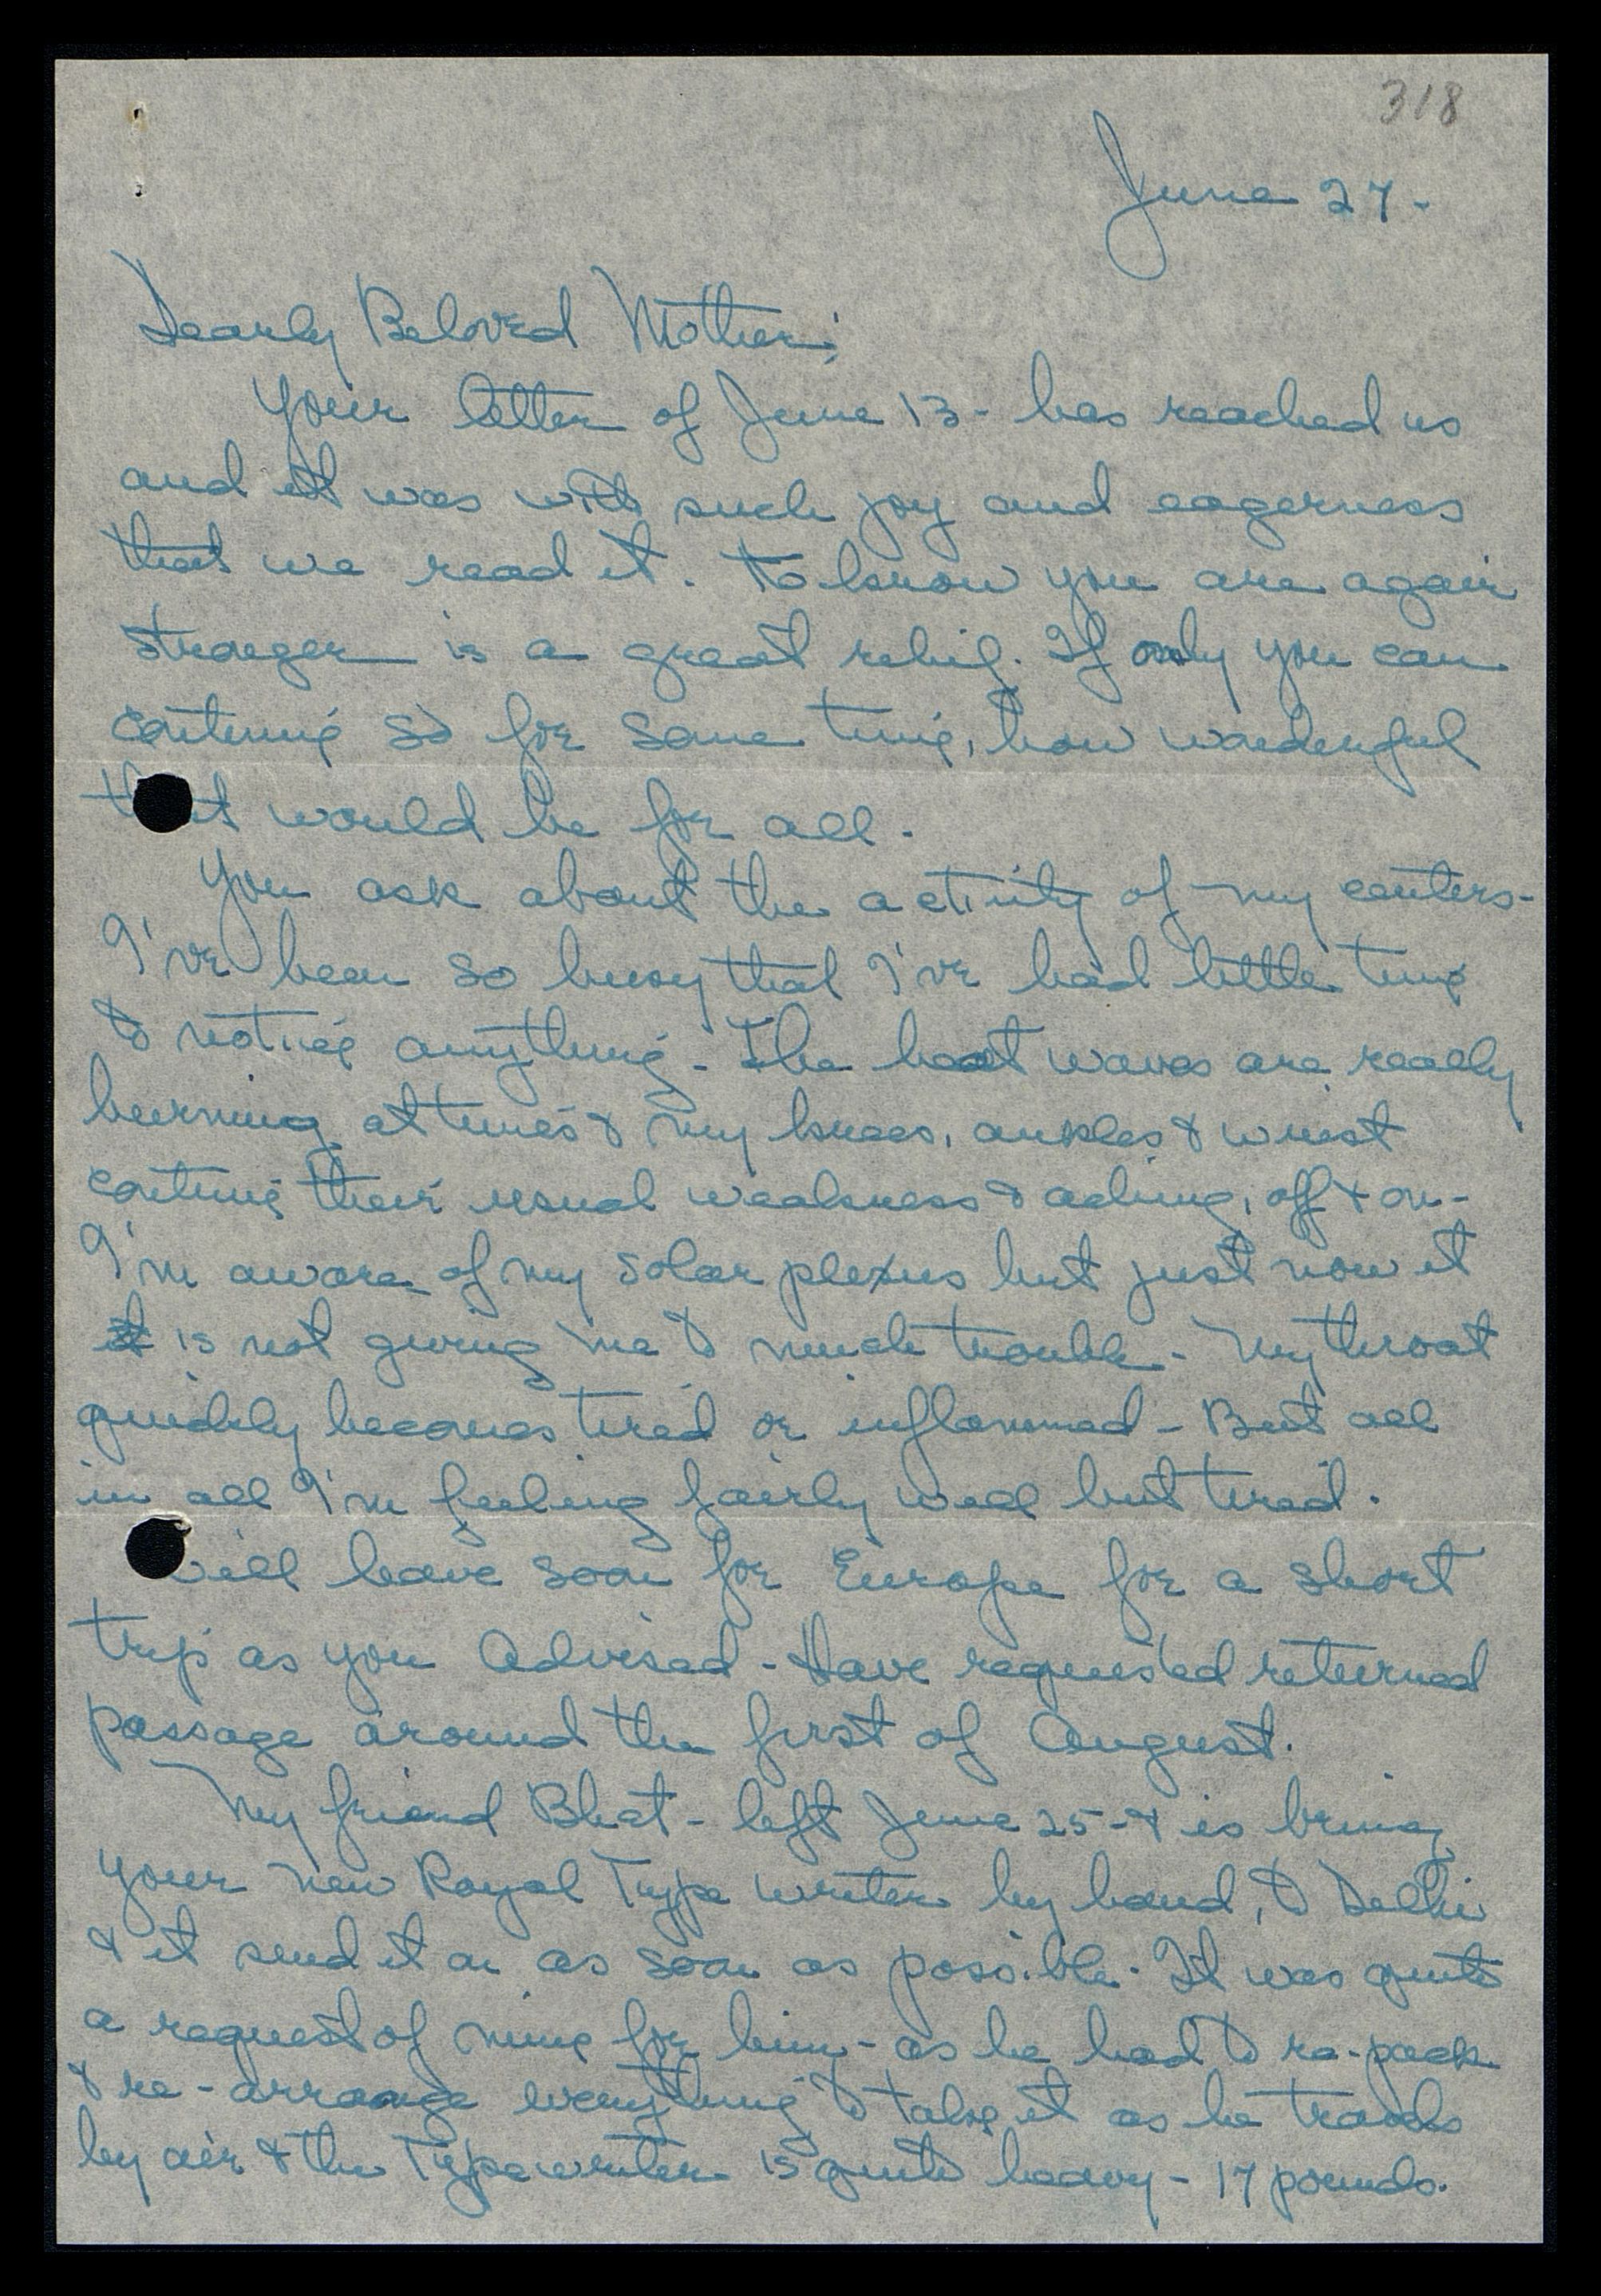 318
June 27-
Dearly Beloved Mother;
Your letter of June 13- has reached us
and it was with such joy and eagerness
that we read it. To know you are again
stronger is a great relief. If only you can
continue so for some time, how wonderful
that would be for all.
You ask about the activity of my centers-
I've been so busy that I've had little time
to notice anything- The heat waves are really
burning at times & my knees, ankles & wrist
continue their usual weakness & aching, off & on-
I'm aware of my solar plexus but just now it
it is not giving me to much trouble- My throat
quickly becomes tired or inflammed- But all
in all I'm feeling fairly well but tired.
Will leave soon for Europe for a short
trip as you Advised- Have requested returned
passage around the first of August.
My friend Bhat- left June 25-& is bring
your new Royal Type writer by hand, to Delhi
& it send it on as soon as possible. It was quite
a request of mine for him- as he had to re-pack
& re-arrange everything to take it as he travels
by air & the Typewriter is quite heavy- 17 pounds.